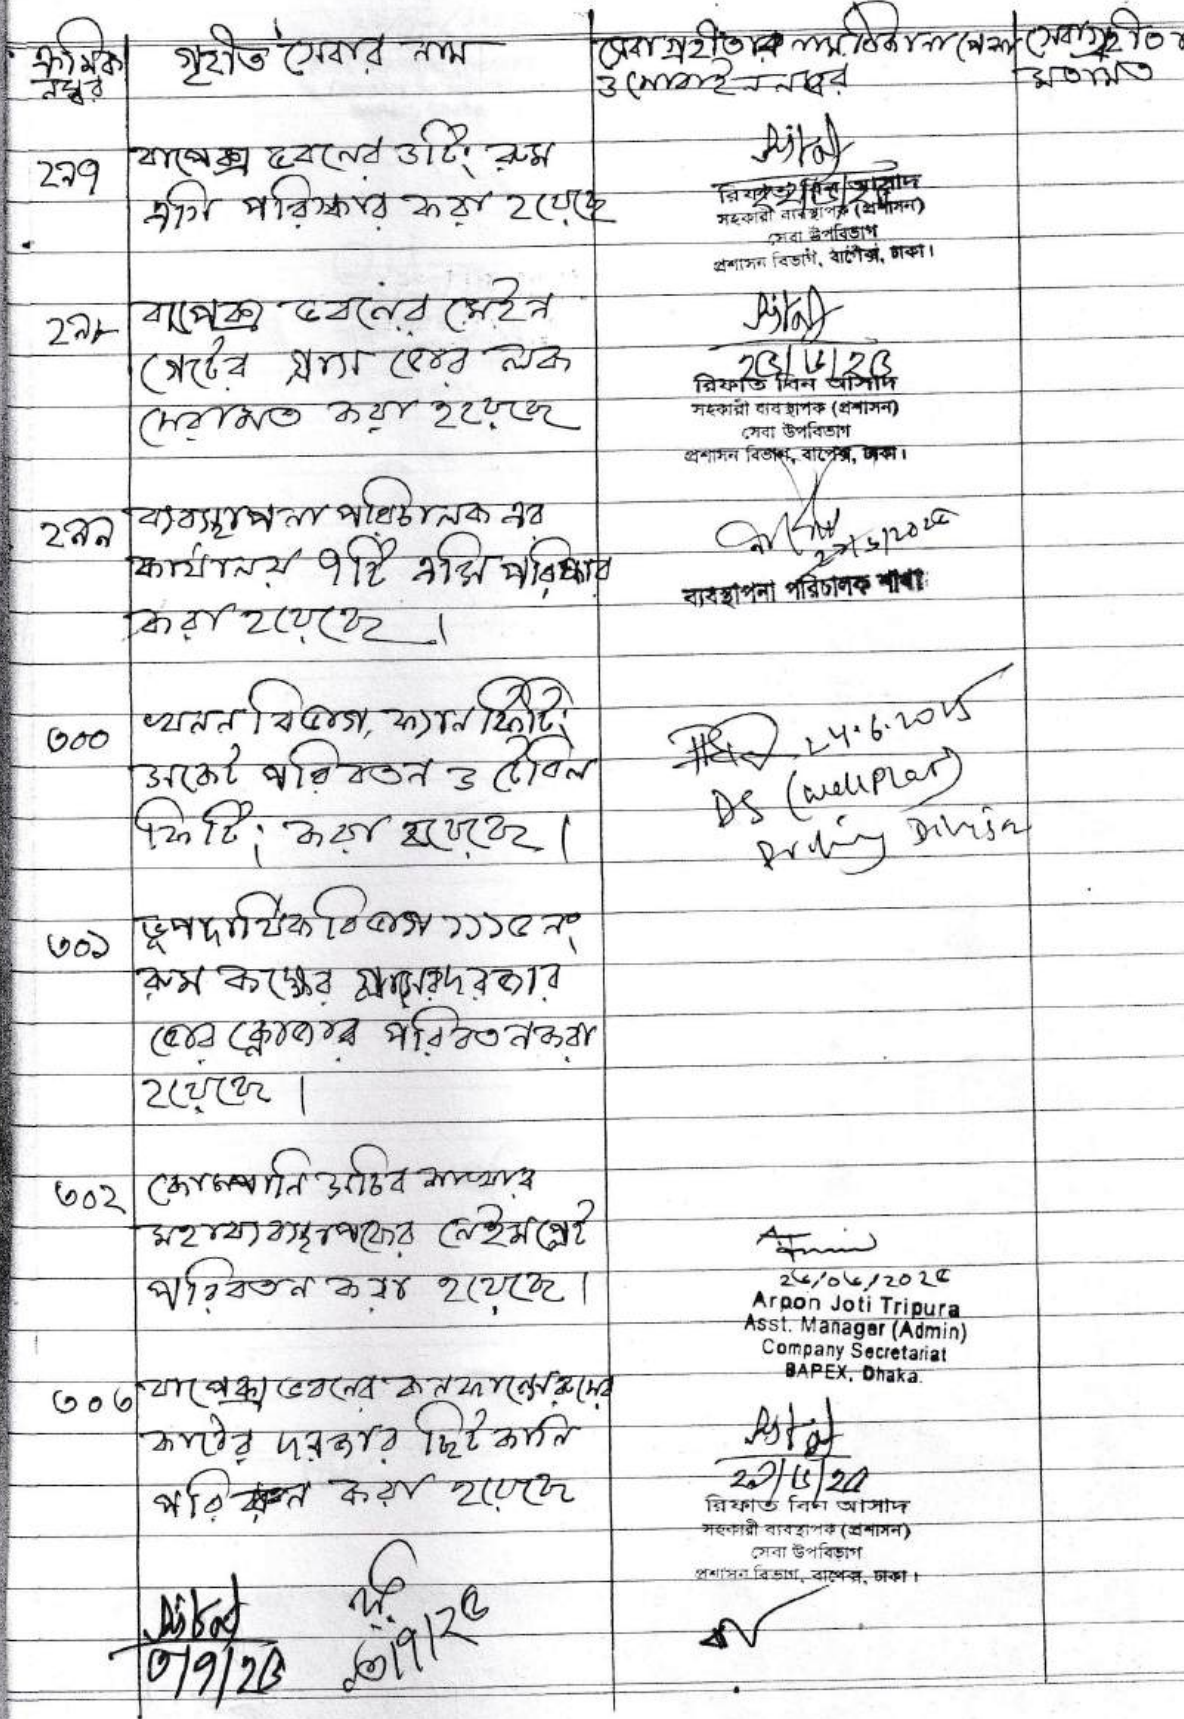 ক্রমিক নম্বর
গৃহীত সেবার নাম
সেবাগ্রহীতার নাম ঠিকানা পেশা
ও মোবাইল নম্বর
সেবাগ্রহীতার
মতামত
২৯৭
বাপেক্স ভবনের ওটিং রুম
এসি পরিস্কার করা হয়েছে
রিফাত বিন আসাদ
সহকারী ব্যবস্থাপক (প্রশাসন)
সেবা উপবিভাগ
প্রশাসন বিভাগ, বাপেক্স, ঢাকা।
২৯৮
বাপেক্স ভবনের মেইন
গেটের গ্লাস ডোর লক
মেরামত করা হয়েছে
২৫/৬/২৫
রিফাত বিন আসাদ
সহকারী ব্যবস্থাপক (প্রশাসন)
সেবা উপবিভাগ
প্রশাসন বিভাগ, বাপেক্স, ঢাকা।
২৯৯
ব্যবস্থাপনা পরিচালক এর
কার্যালয় ৭টি এসি পরিষ্কার
করা হয়েছে।
ব্যবস্থাপনা পরিচালক শাখা
৩০০
খনন বিভাগ, ফ্যান ফিটিং
সকেট পরিবতন ও টেবিল
ফিটিং করা হয়েছে।
24.6.2025
DS (Well Plan)
Drilling Division
৩০১
ভূপদার্থিক বিভাগ ১১১৫ নং
রুম কক্ষের গ্লাসের দরজার
ডোর ক্লোজার পরিবতন করা
হয়েছে।
৩০২
কোম্পানি সচিব শাখার
মহাব্যবস্থাপকের নেইম প্লেট
পরিবতন করা হয়েছে।
২৬/০৬/২০২৫
Arpon Joti Tripura
Asst. Manager (Admin)
Company Secretariat
BAPEX, Dhaka.
৩০৩
বাপেক্স ভবনের কনফারেন্স রুমের
কাঠের দরজার ছিটকানি
পরিবতন করা হয়েছে
২৯/৬/২৫
রিফাত বিন আসাদ
সহকারী ব্যবস্থাপক (প্রশাসন)
সেবা উপবিভাগ
প্রশাসন বিভাগ, বাপেক্স, ঢাকা।
৩/৭/২৫
৩/৭/২৫